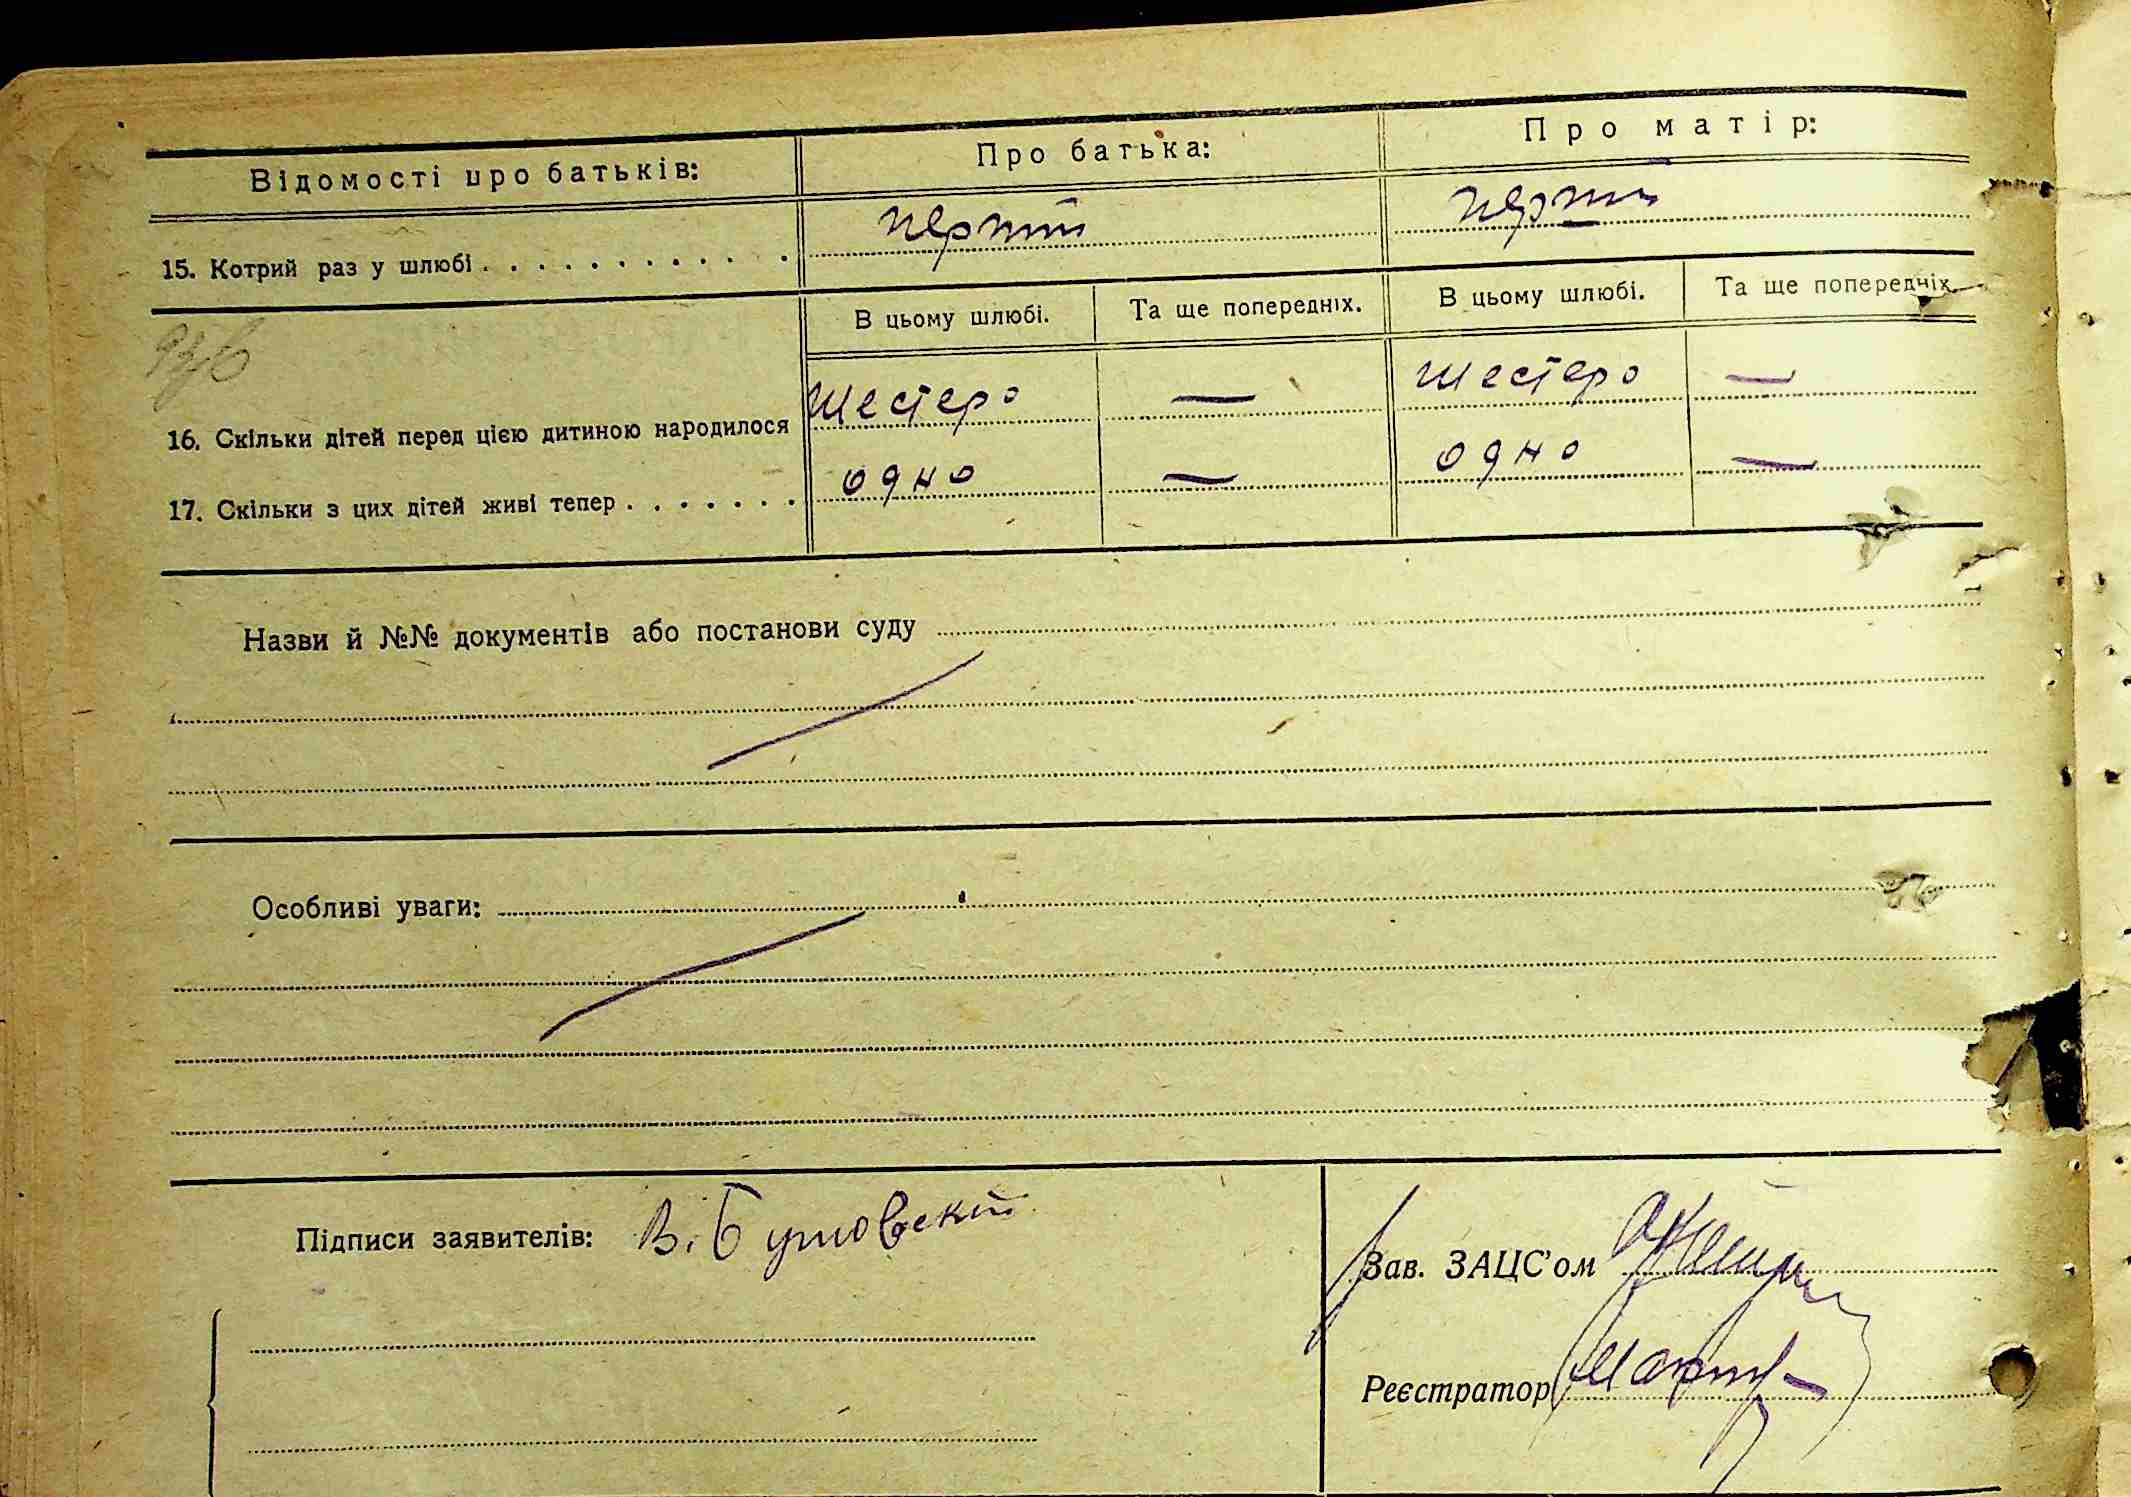 Відомості про батьків: Про батька: Про матір:
15. Котрий раз у шлюбі . . . . . . . . . . . . перший перший
В цьому шлюбі. Та ще попередніх. В цьому шлюбі. Та ще попередніх.
16. Скільки дітей перед цією дитиною народилося шестеро — шестеро —
17. Скільки з цих дітей живі тепер . . . . . . . одно — одно —
Назви й №№ документів або постанови суду
Особливі уваги:
Підписи заявителів: В.
Зав. ЗАЦС'ом
Реєстратор